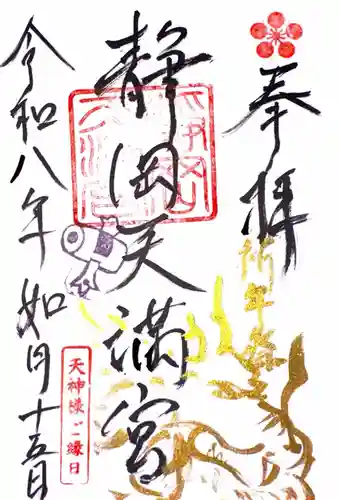 奉拝
祈年祭
静岡天満宮
天神様ご縁日
令和八年如月十五日